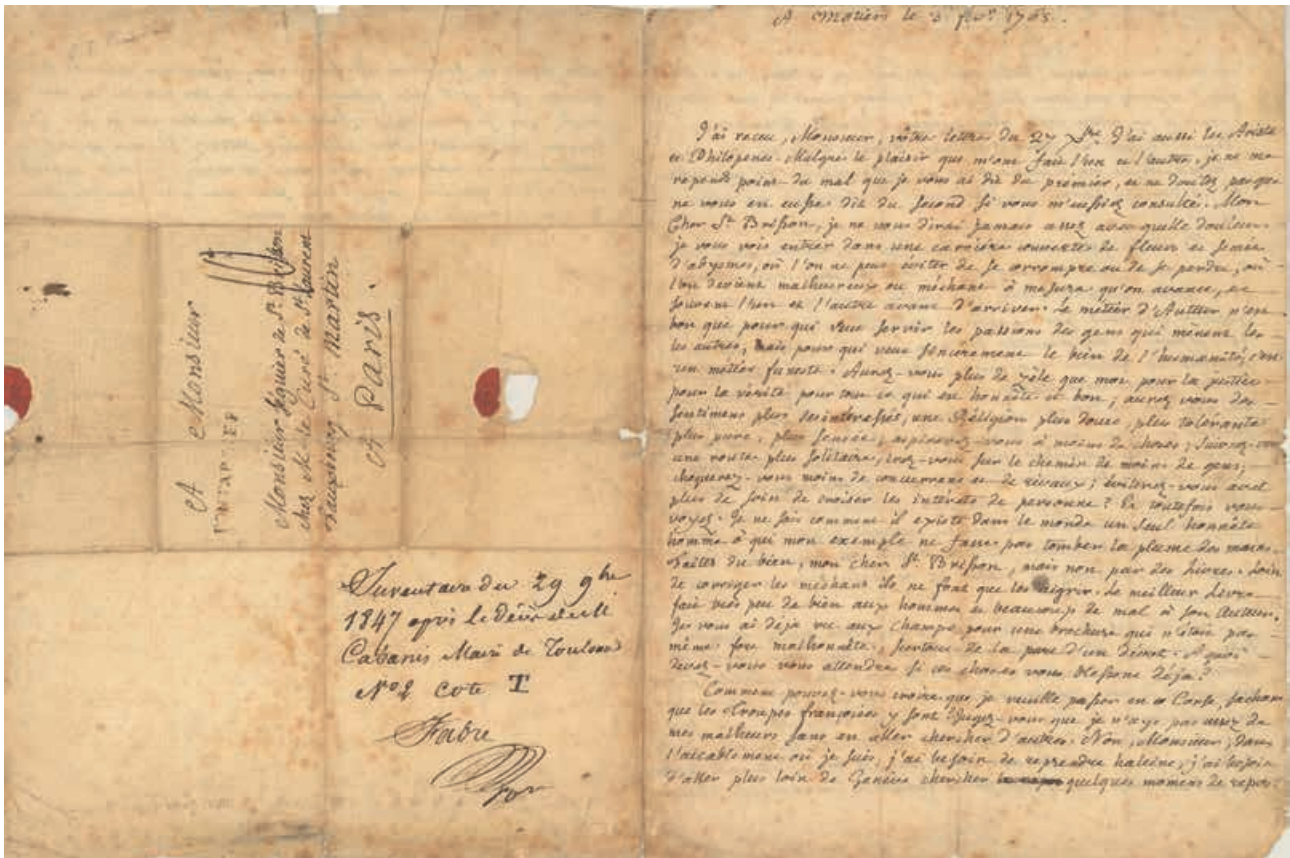 A Monsieur
Monsieur Seguier de St. Brisson
chez M. le Curé de St. Laurent
Fauxbourg St. Martin
A Paris.
PONTARLIER
Inventaire du 29 9bre
1847 après le décès de M
Cabanis Maire de Toulouse
No 2 Cote T
Fabre
A Motiers le
J'ai receu, Monsieur, vôtre lettre du 27 Xbre. J'ai aussi lu Ariste
et Philopenes. Malgré le plaisir que m'ont fait l'un et l'autre, je ne me
repends point du mal que je vous ai dit du prémier, et ne doutez pas que
ne vous en eusse dit du second si vous m'eussiez consulté. Mon
Cher St. Brisson, je ne vous dirai jamais assez avec quelle douleur
je vous vois entrer dans une carriére couverte de fleurs et semée
d'abymes, où l'on ne peut éviter de se corrompre ou de se perdre, où
l'on devient malheureux ou méchant à mesure qu'on avance, et
souvent l'un et l'autre avant d'arriver. Le métier d'Auteur n'est
bon que pour qui veut servir les passions des gens qui ménent les
les autres, mais pour qui veut sincérement le bien de l'humanité, c'est
un métier funeste. Aurez-vous plus de zéle que moi pour la justice
pour la vérité pour tout ce qui est honnête et bon; aurez vous des
sentimens plus desinteressés, une Réligion plus douce, plus tolérante
plus pure, plus sensée; aspirerez-vous à moins de choses; suivrez-vous
une route plus solitaire, irez-vous sur le chemin de moins de gens;
choquerez-vous moins de concurrens et de rivaux; éviterez-vous avec
plus de soin de croiser les intérets de personne? Et toutefois vous
voyez. Je ne sais comment il existe dans le monde un seul honnête
homme à qui mon exemple ne fasse pas tomber la plume des mains.
Faites du bien, mon cher St. Brisson, mais non pas des Livres. Loin
de corriger les méchans ils ne font que les aigrir. Le meilleur Livre
fait très peu de bien aux hommes et beaucoup de mal à son Auteur.
Je vous ai déja vu aux champs pour une brochure qui n'étoit pas
même fort malhonnête, à quoi
devez-vous vous attendre si ces choses vous blessent déja?
Comment pouvez-vous croire que je veuille passer en Corse, sachant
que les Troupes françoises y sont? Jugez-vous que je n'aye pas assez de
mes malheurs sans en aller chercher d'autres. Non, Monsieur, dans
l'accablement où je suis, j'ai besoin de reprendre haleine, j'ai besoin
d'aller plus loin de Genève chercher quelques momens de repos.